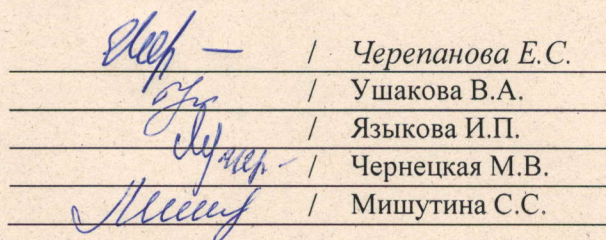 / Черепанова Е.С.
/ Ушакова В.А.
/ Языкова И.П.
/ Чернецкая М.В.
/ Мишутина С.С.